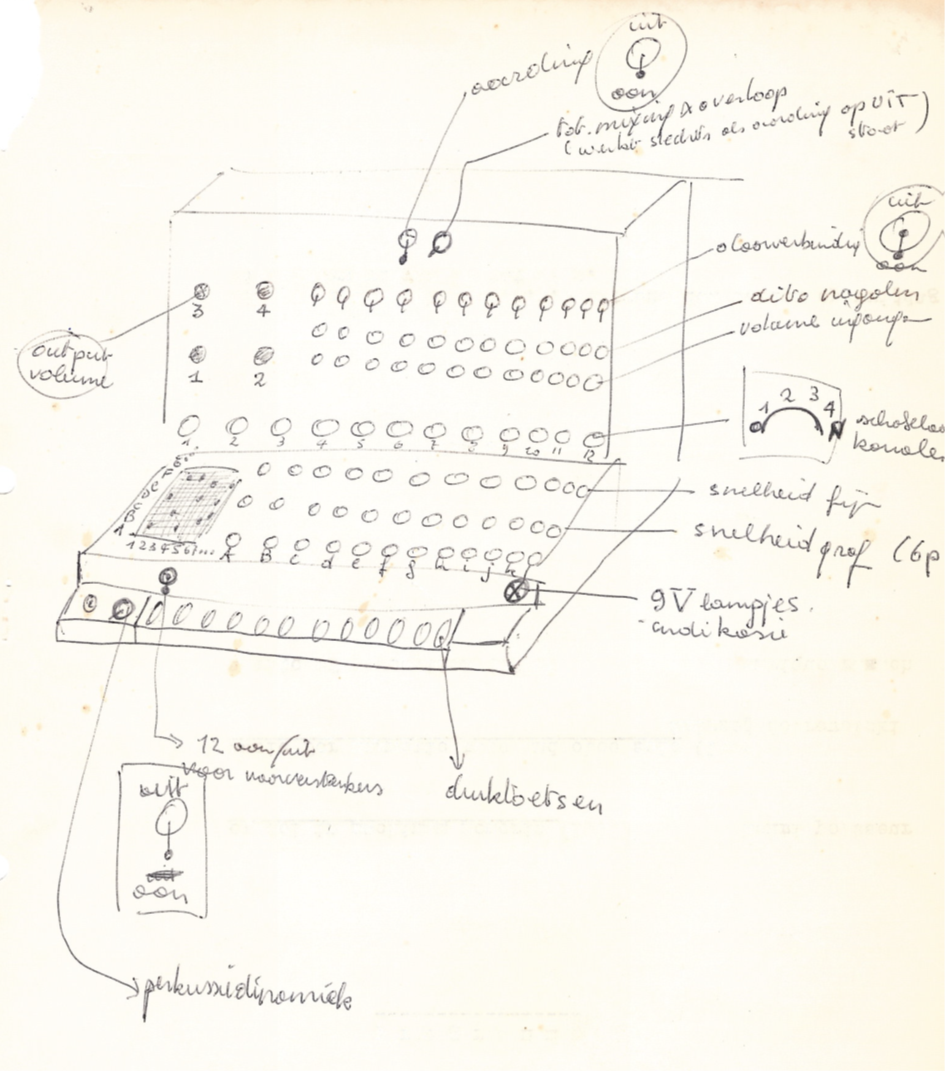 uit
aarding
aan
tot. mixing & overloop
(werkt slechts als aarding op UIT
staat)
uit
doorverbinding
aan
dito regelen
volume ingang
3 4
output
volume
1 2
1 2 3 4
schakelaar
kanalen
1. 2 3 4 5 6 7 8 9 10 11 12
snelheid fijn
F
E
D
C
B
A
1 2 3 4 5 6 7...
snelheid grof (6p
A B c d e f g h i j k
9V lampjes
indikasie
12 aan/uit
voor voorversterkers
druktoetsen
uit
uit
aan
perkussiedinamiek